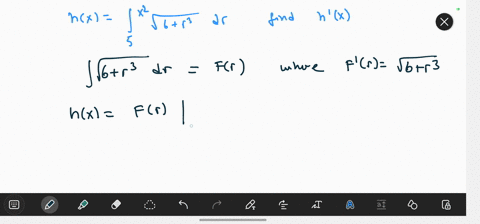 h(x) = ∫₅^x² √6+r³ dr find h'(x)
∫√6+r³ dr = F(r) where F'(r) = √6+r³
h(x) = F(r) |